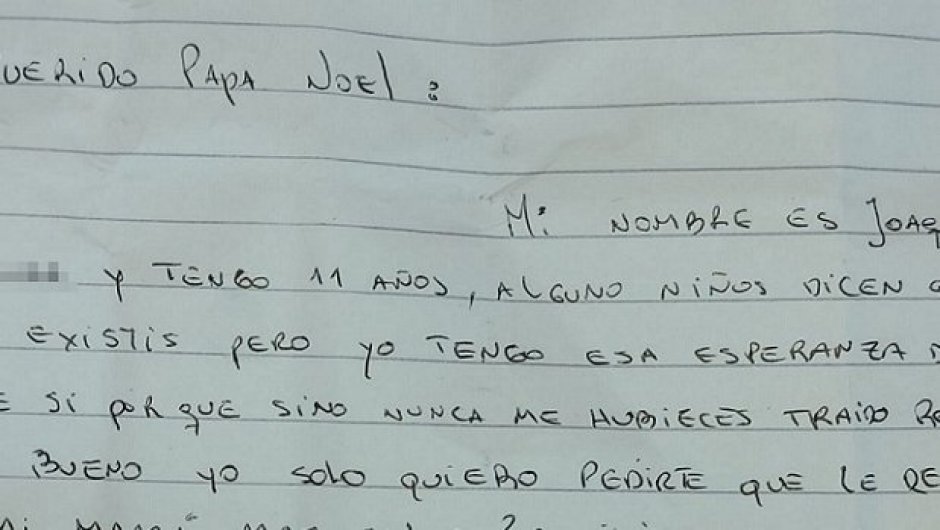 UERIDO PAPA NOEL:
Mi NOMBRE ES JOAQ
Y TENGO 11 AÑOS, ALGUNO NIÑOS DICEN
EXISTIS PERO YO TENGO ESA ESPERANZA
E SI PORQUE SINO NUNCA ME HUBIECES TRAIDO RE
BUENO YO SOLO QUIERO PEDIRTE QUE LE RE